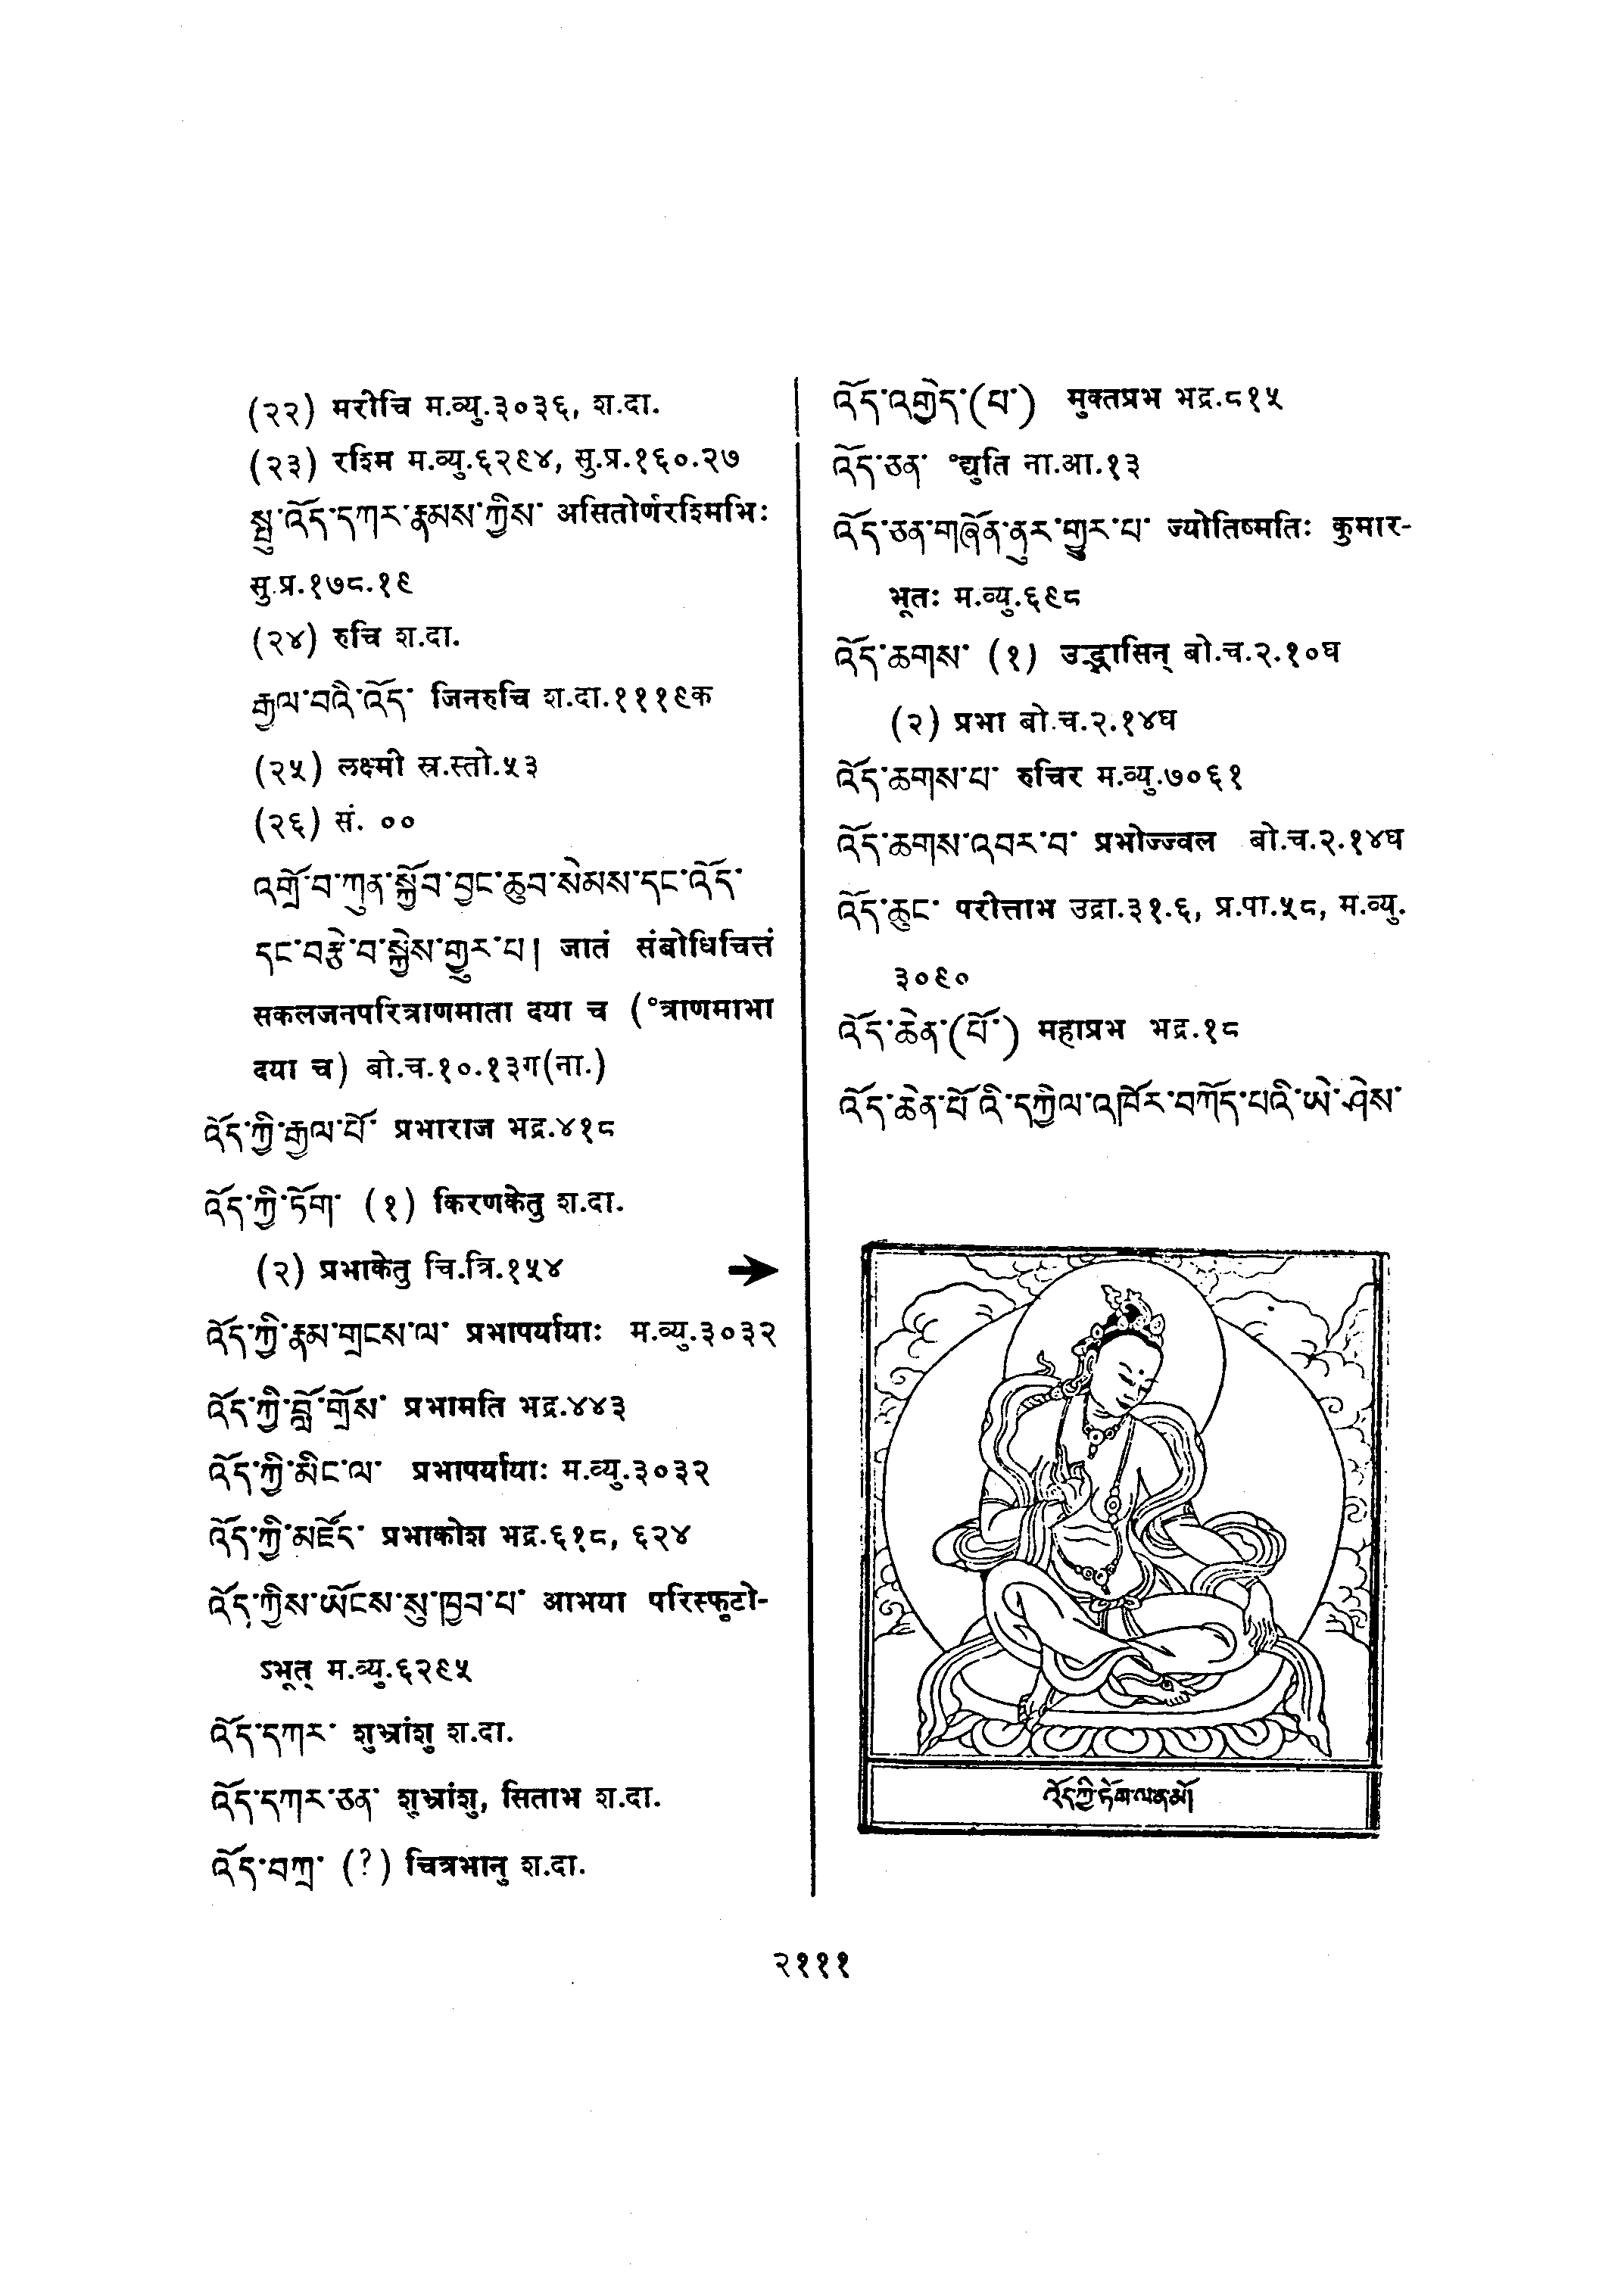 (२२) मरीचि म.व्यु.३०३६, श.दा.
(२३) रश्मि म.व्यु.६२९४, सु.प्र.१६०.२७
སྤུ་འོད་དཀར་རྣམས་ཀྱིས་ असितोर्णरश्मिभिः
सु.प्र.१७८.१९
(२४) रुचि श.दा.
རྒྱལ་བའི་འོད་ जिनरुचि श.दा.१११९क
(२५) लक्ष्मी स्र.स्तो.५३
(२६) सं. ००
འགྲོ་བ་ཀུན་སྐྱོབ་བྱང་ཆུབ་སེམས་དང་འོད་
དང་བརྩེ་བ་སྐྱེས་གྱུར་པ། जातं संबोधिचित्तं
सकलजनपरित्राणमाता दया च (°त्राणमाभा
दया च) बो.च.१०.१३ग(ना.)
འོད་ཀྱི་རྒྱལ་པོ་ प्रभाराज भद्र.४१८
འོད་ཀྱི་ཏོག་ (१) किरणकेतु श.दा.
(२) प्रभाकेतु चि.त्रि.१५४ ➔
འོད་ཀྱི་རྣམ་གྲངས་ལ་ प्रभापर्यायाः म.व्यु.३०३२
འོད་ཀྱི་བློ་གྲོས་ प्रभामति भद्र.४४३
འོད་ཀྱི་མིང་ལ་ प्रभापर्यायाः म.व्यु.३०३२
འོད་ཀྱི་མཛོད་ प्रभाकोश भद्र.६१८, ६२४
འོད་ཀྱིས་ཡོངས་སུ་ཁྱབ་པ་ आभया परिस्फुटो-
ऽभूत् म.व्यु.६२९५
འོད་དཀར་ शुभ्रांशु श.दा.
འོད་དཀར་ཅན་ शुभ्रांशु, सिताभ श.दा.
འོད་བཀྲ་ (?) चित्रभानु श.दा.
འོད་འགྱེད་(པ་) मुक्तप्रभ भद्र.८१५
འོད་ཅན་ °द्युति ना.आ.१३
འོད་ཅན་གཞོན་ནུར་གྱུར་པ་ ज्योतिष्मतिः कुमार-
भूतः म.व्यु.६९८
འོད་ཆགས་ (१) उद्भासिन् बो.च.२.१०घ
(२) प्रभा बो.च.२.१४घ
འོད་ཆགས་པ་ रुचिर म.व्यु.७०६१
འོད་ཆགས་འབར་བ་ प्रभोज्ज्वल बो.च.२.१४घ
འོད་ཆུང་ परीत्ताभ उद्रा.३१.६, प्र.पा.५८, म.व्यु.
३०९०
འོད་ཆེན་(པོ་) महाप्रभ भद्र.१८
འོད་ཆེན་པོ་འི་དཀྱིལ་འཁོར་བཀོད་པའི་ཡེ་ཤེས་
འོད་ཀྱི་ཏོག་ལ་ན་མོ།
२१११